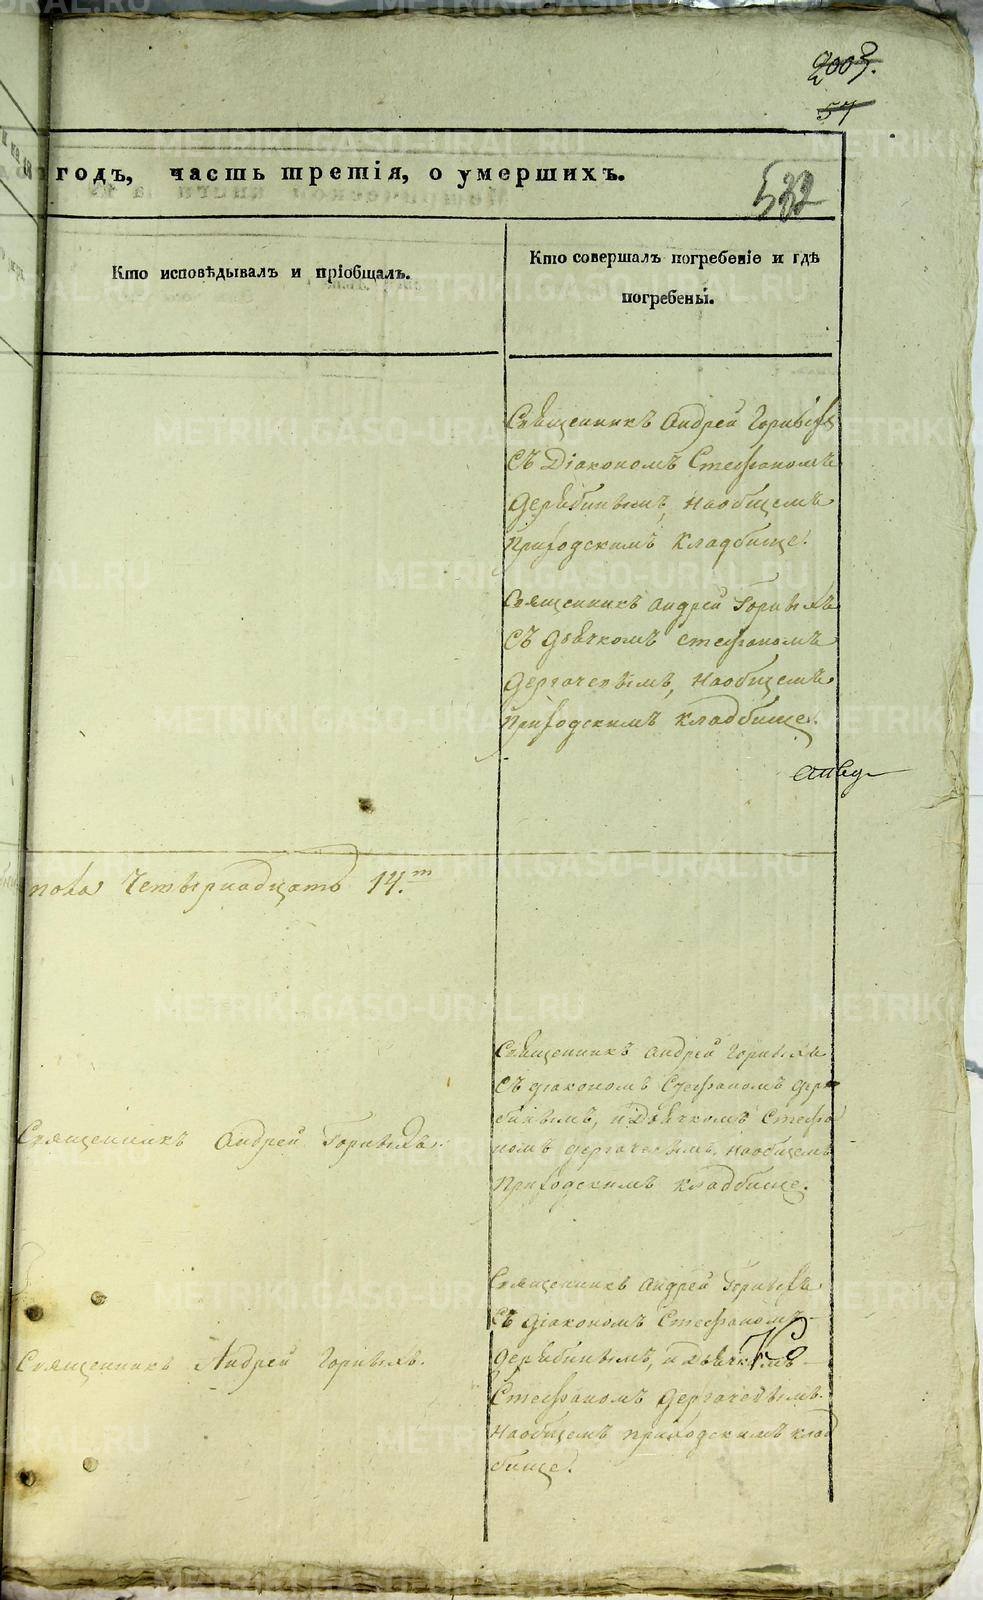 2003.
57
годъ, часть третія, о умершихъ.
532
Кто исповѣдывалъ и пріобщалъ.
Кто совершалъ погребеніе и гдѣ
погребены.
Священникъ Андрей Горныхъ
Съ Діакономъ Стефаномъ
Дерябинымъ, наобщемъ
Приходскимъ Кладбище.
Священникъ Андрей Горныхъ
Съ Дьячкомъ Стефаномъ
Дергачевымъ, наобщемъ
Приходскимъ кладбище.
пола Четырнадцать 14.т
Священникъ Андрей Горныхъ
Съ діакономъ Стефаномъ Деря
бинымъ, и Дьячкомъ Стефа
номъ Дергачевымъ, наобщемъ
Приходскимъ кладбище.
Священникъ Андрей Горныхъ.
Священникъ Андрей Горныхъ
Съ діакономъ Стефаномъ
Дерябинымъ, и Дьячкомъ
Священникъ Андрей Горныхъ.
Стефаномъ Дергачевымъ.
Наобщемъ приходскимъ клад
бище.
METRIKI.GASO-URAL.RU